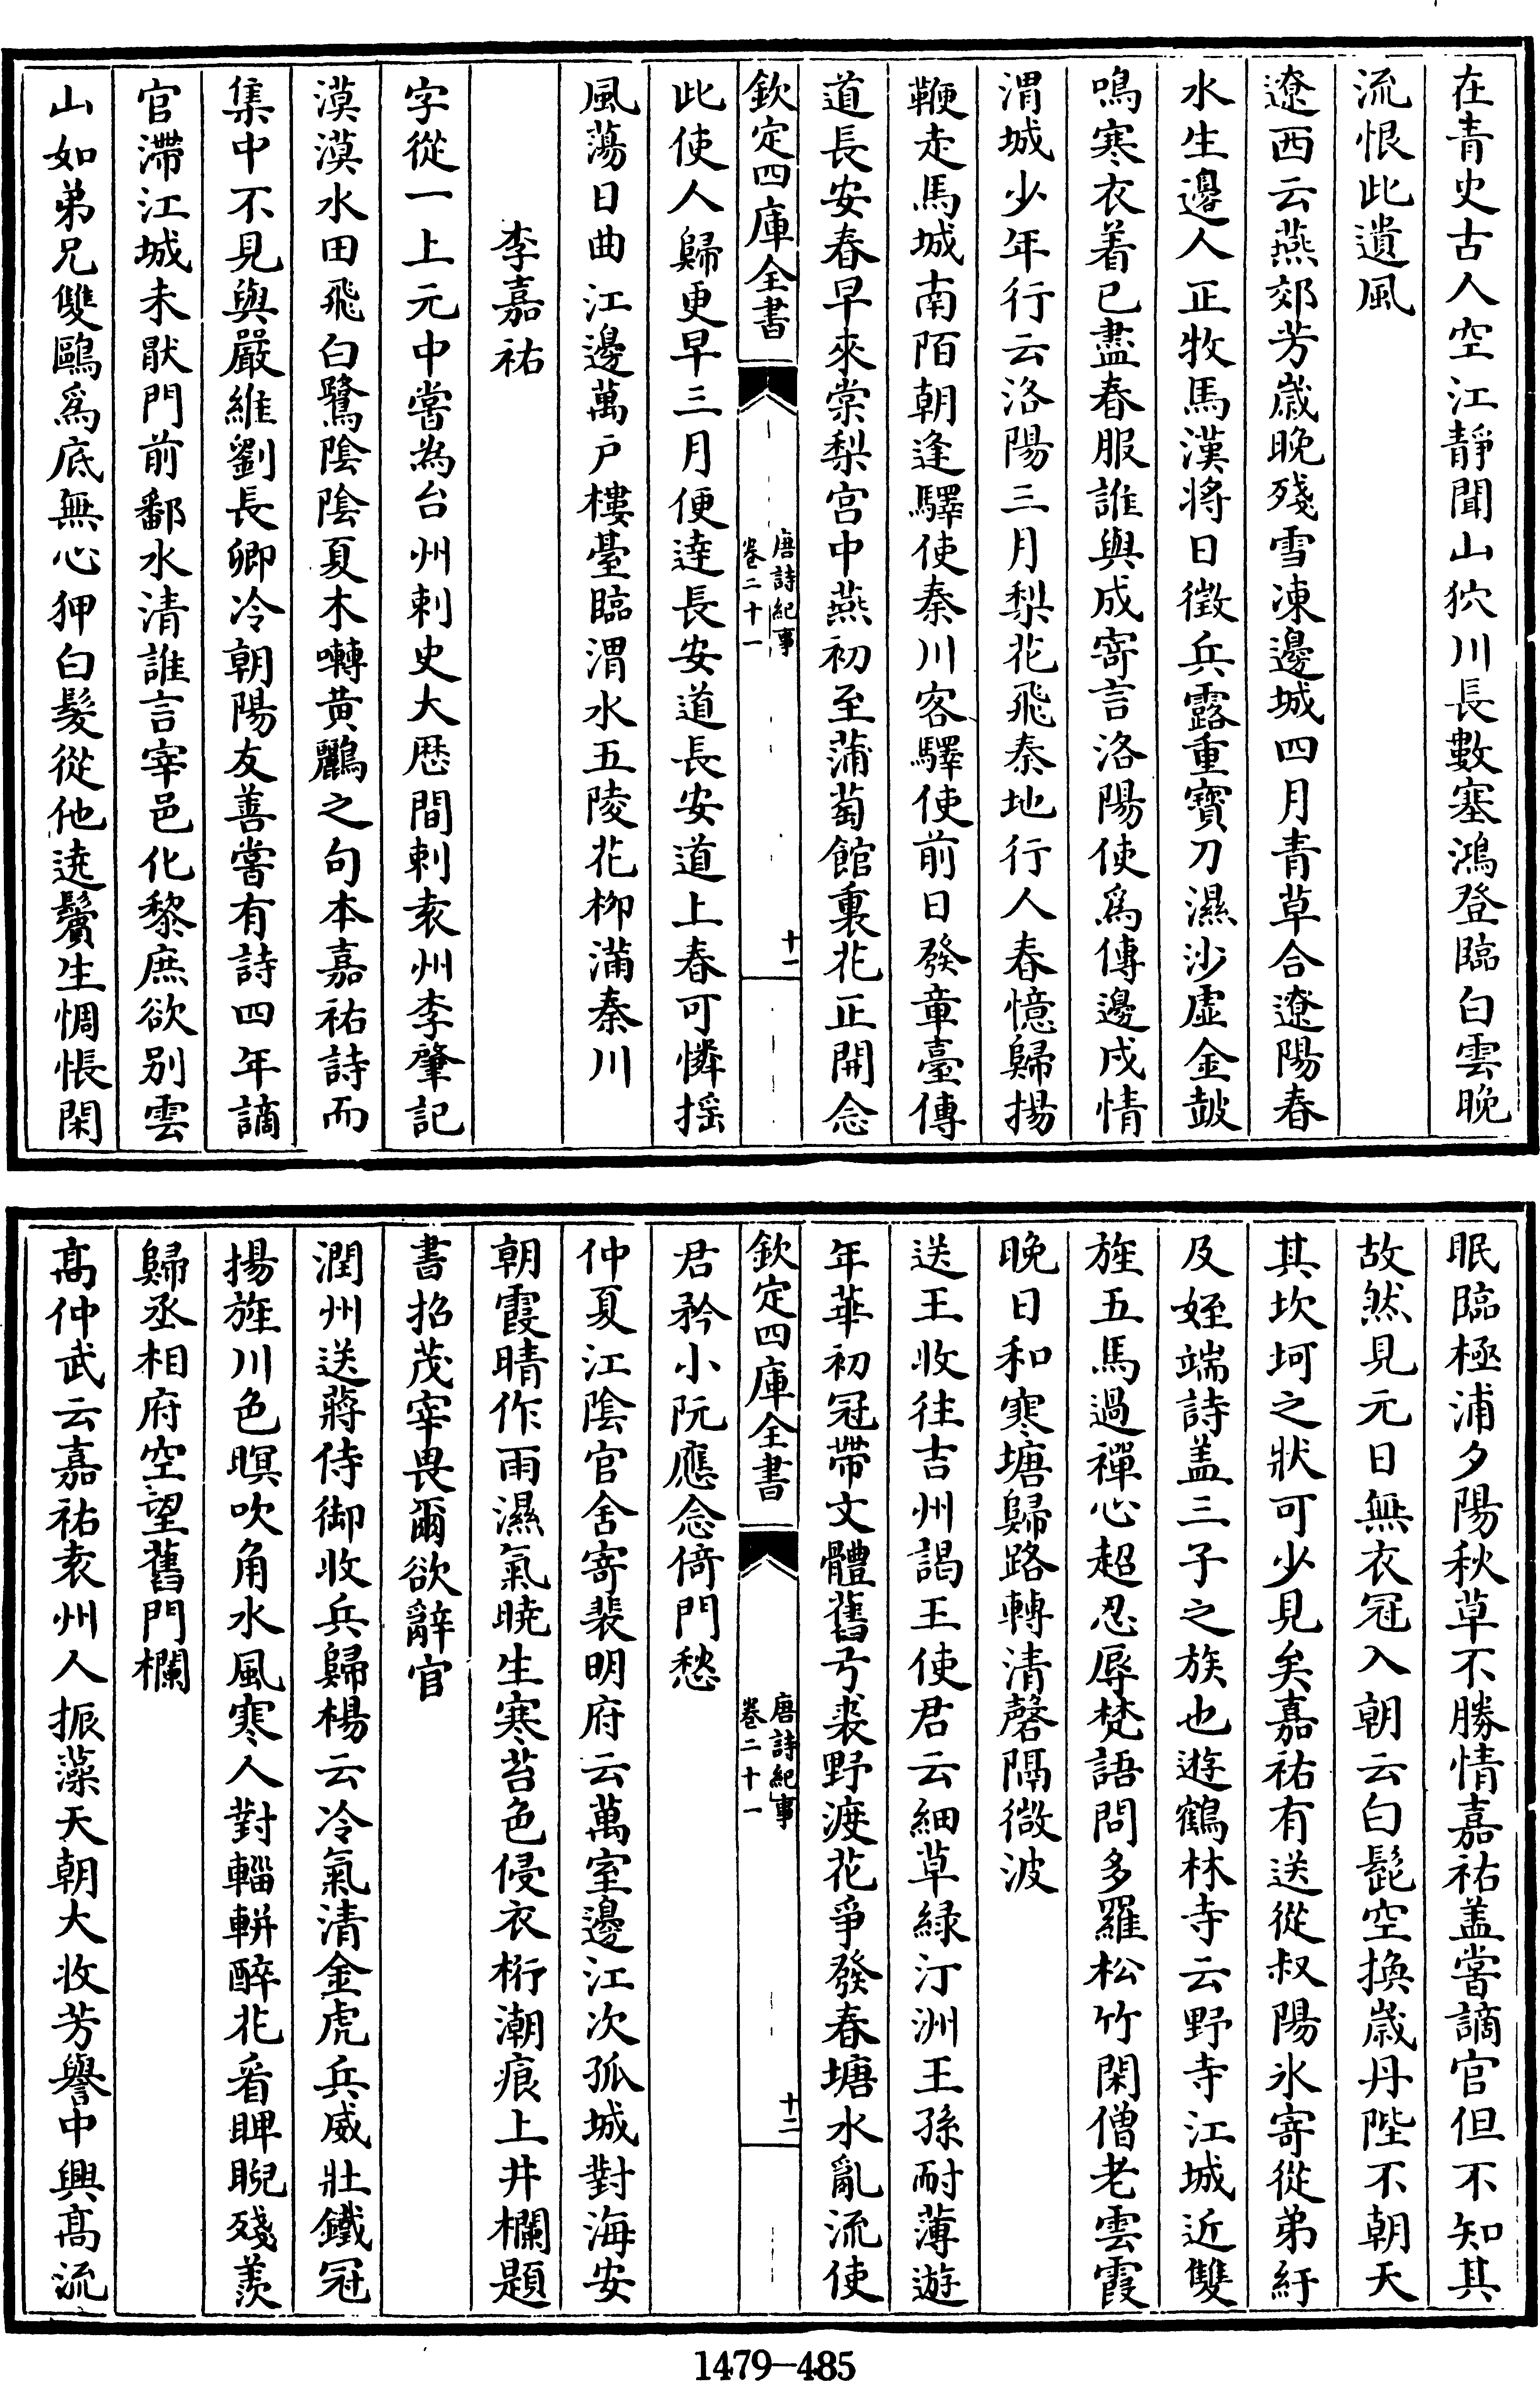 在青史古人空江靜聞山狖川長數塞鴻登臨白雲晚
流恨此遺風
遼西云燕郊芳歳晚殘雪凍邊城四月青草合遼陽春
水生邊人正牧馬漢将日徴兵露重寳刀濕沙虚金鼓
鳴寒衣着已盡春服誰與成寄言洛陽使爲傳邊戍情
渭城少年行云洛陽三月梨花飛秦地行人春憶歸揚
鞭走馬城南陌朝逢驛使秦川客驛使前日發章臺傳
道長安春早來棠梨宫中燕初至蒲萄館裏花正開念
欽定四庫全書
唐詩紀事
卷二十一
十一
此使人歸更早三月便逹長安道長安道上春可憐揺
風蕩日曲江邊萬戸樓臺臨渭水五陵花栁滿秦川
李嘉祐
字從一上元中嘗為台州刺史大厯間刺袁州李肇記
漠漠水田飛白鷺隂隂夏木囀黄鸝之句本嘉祐詩而
集中不見與嚴維劉長卿冷朝陽友善嘗有詩四年謫
官滯江城未厭門前鄱水清誰言宰邑化黎庶欲别雲
山如弟兄雙鷗爲底無心狎白髪從他遶鬢生惆悵閑
眠臨極浦夕陽秋草不勝情嘉祐盖嘗謫官但不知其
故然見元日無衣冠入朝云白髭空換歳丹陛不朝天
其坎坷之狀可少見矣嘉祐有送從叔陽氷寄從弟紆
及姪端詩盖三子之族也遊鶴林寺云野寺江城近雙
旌五馬過禪心超忍辱梵語問多羅松竹閑僧老雲霞
晚日和寒塘歸路轉清磬隔微波
送王收往吉州謁王使君云細草緑汀洲王孫耐薄遊
年華初冠帶文體舊弓裘野渡花爭發春塘水亂流使
欽定四庫全書
唐詩紀事
卷二十一
十二
君矜小阮應念倚門愁
仲夏江隂官舍寄裴明府云萬室邊江次孤城對海安
朝霞晴作雨濕氣曉生寒苔色侵衣桁潮痕上井欄題
書招茂宰畏爾欲辭官
潤州送蔣侍御收兵歸楊云冷氣清金虎兵威壯鐵冠
揚旌川色暝吹角水風寒人對輜軿醉花看睥睨殘羨
歸丞相府空望舊門欄
髙仲武云嘉祐袁州人振藻天朝大收芳譽中興髙流
1479—485